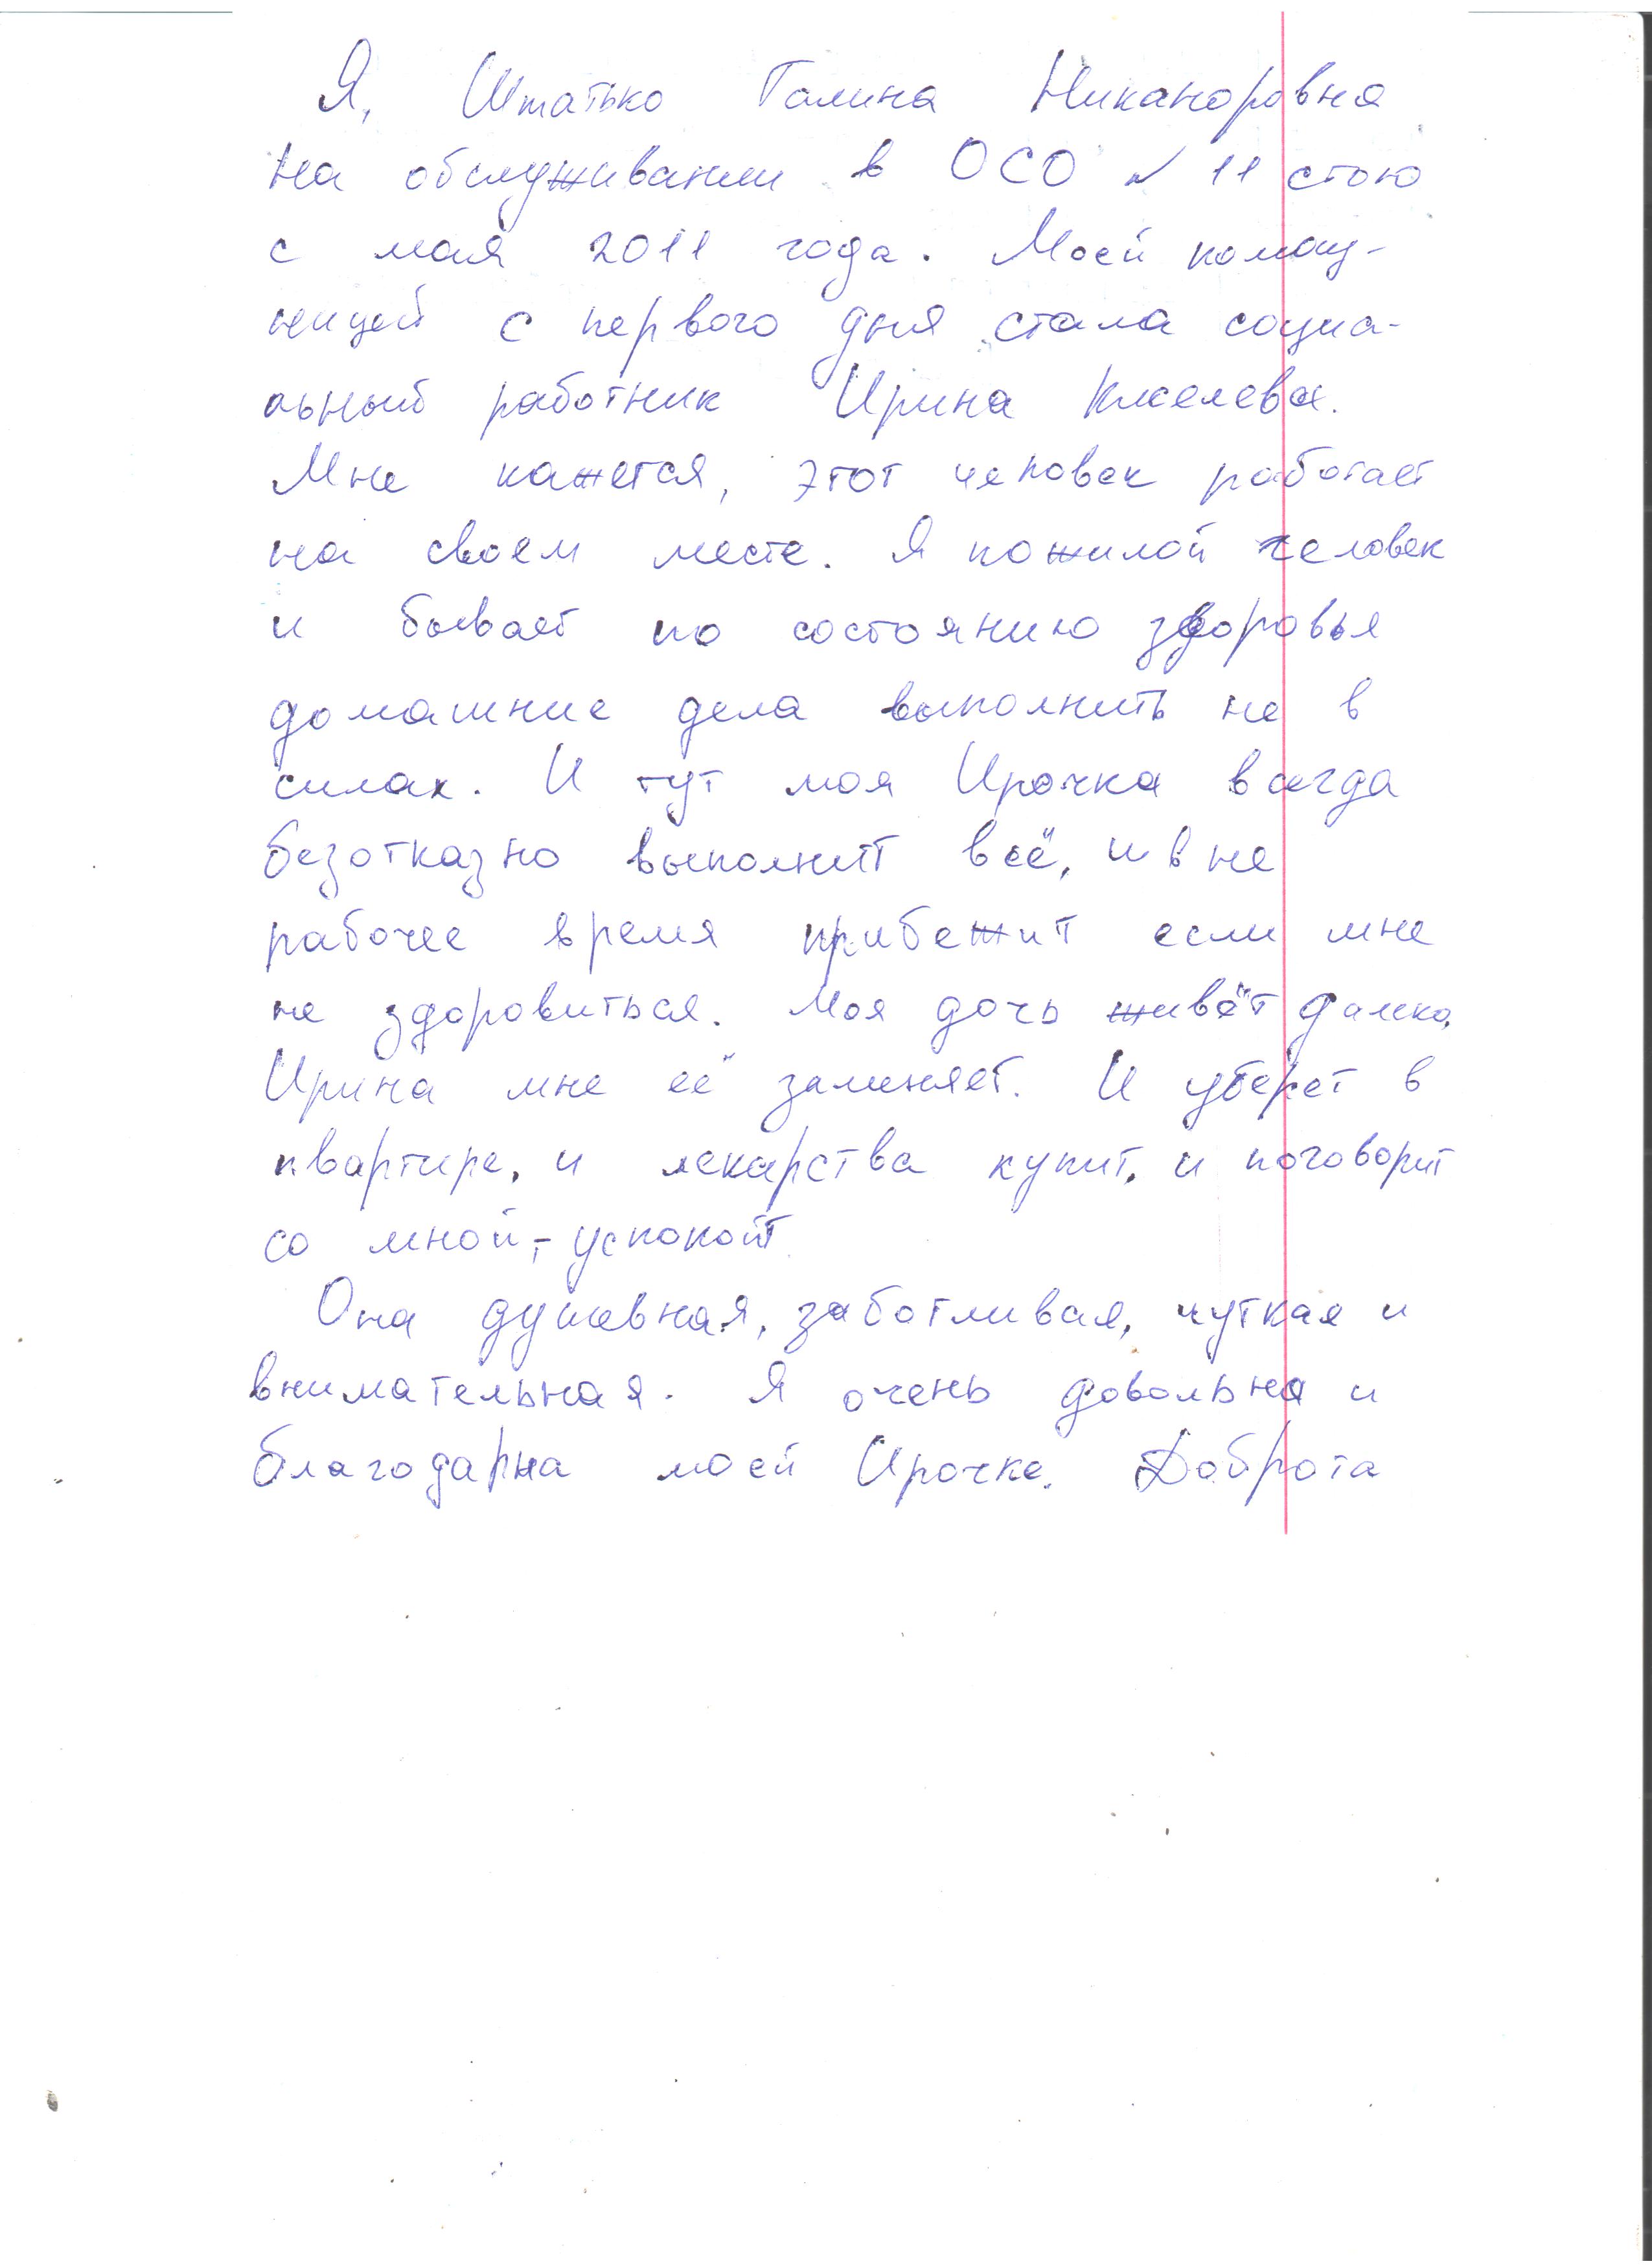 Я, Штатько Галина Никаноровна
на обслуживании в ОСО № 11 стою
с мая 2011 года. Моей помощ-
ницей с первого дня стала социа-
льный работник Ирина Киселева.
Мне кажется, этот человек работает
на своем месте. Я пожилой человек
и бывает по состоянию здоровья
домашние дела выполнить не в
силах. И тут моя Ирочка всегда
безотказно выполнит всё, и в не
рабочее время прибежит если мне
не здоровиться. Моя дочь живёт далеко,
Ирина мне её заменяет. И уберет в
квартире, и лекарства купит, и поговорит
со мной, - успокоит
Она душевная, заботливая, чуткая и
внимательная. Я очень довольна и
благодарна моей Ирочке. Доброта